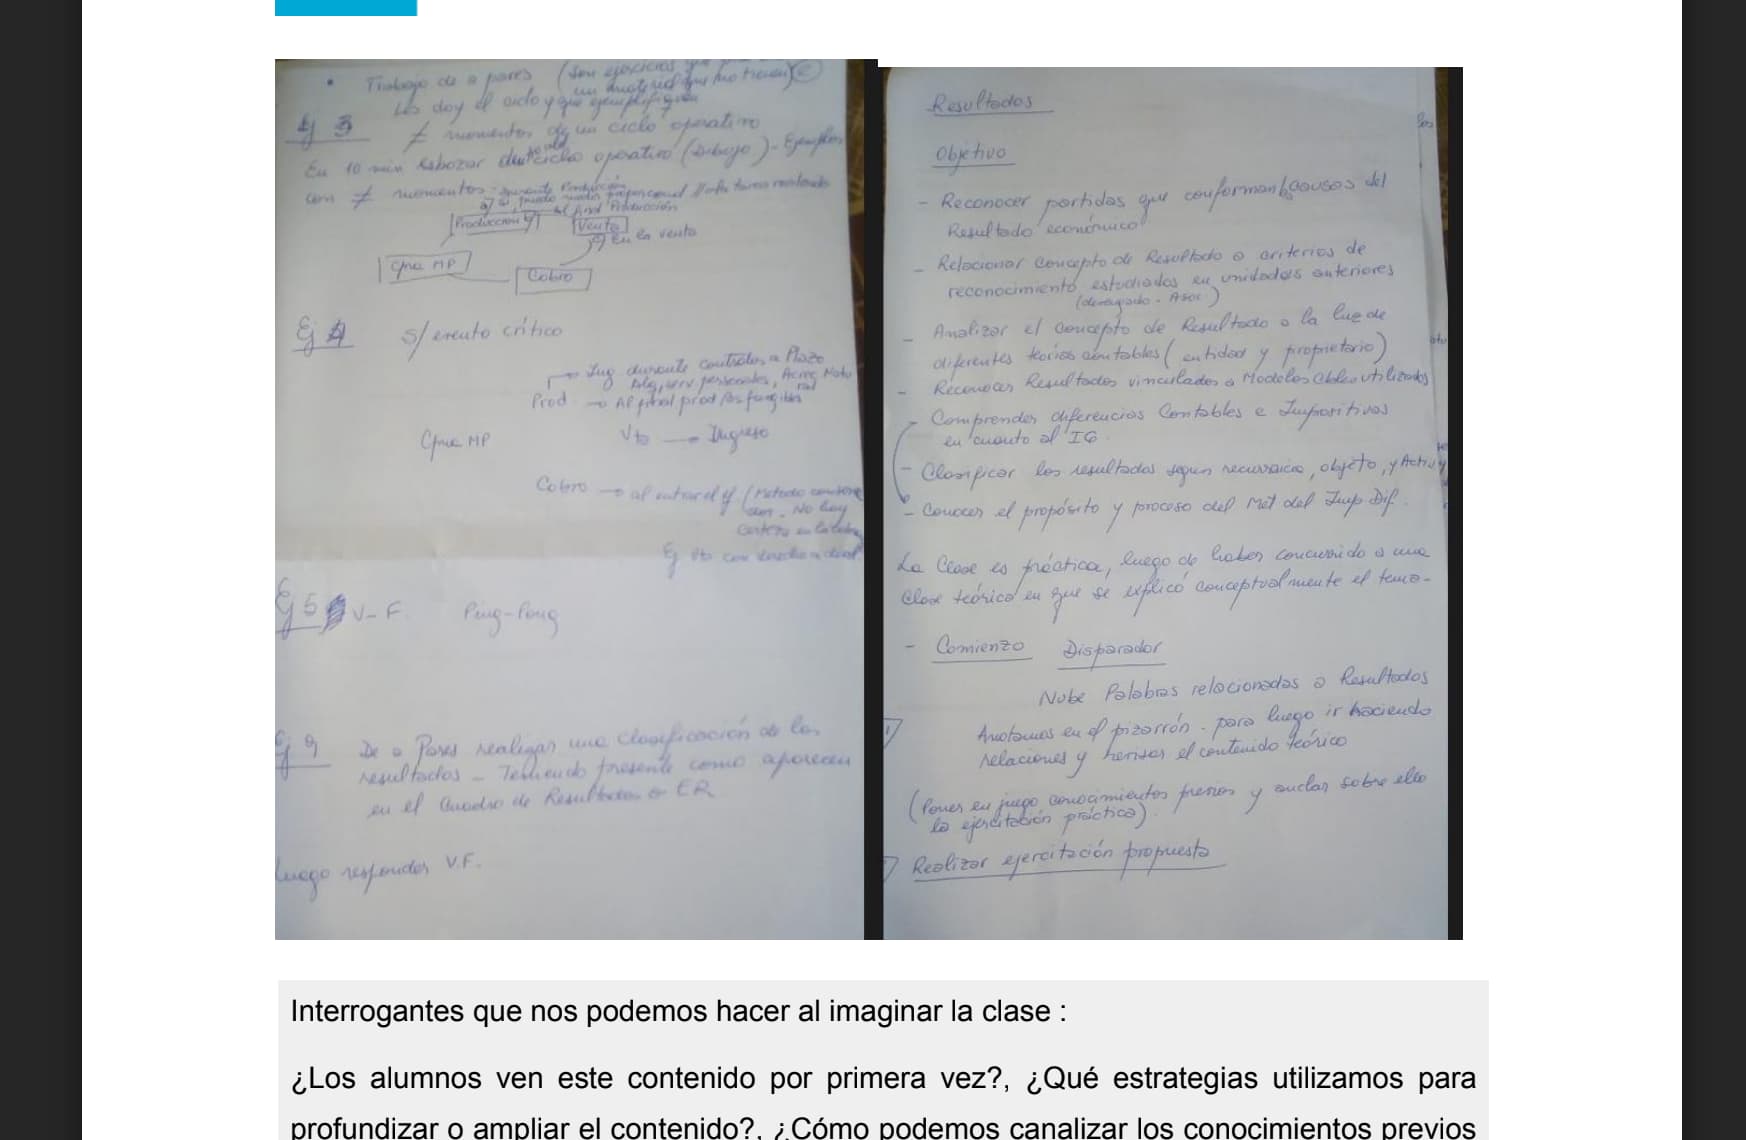 Trabajo de a pares (Son ejercicios que
un material que no tienen)
Les doy el ciclo y que ejemplifiquen
Ej 3 ≠ momentos de un ciclo operativo
En 10 min esbozar ciclo operativo (Dibujo) - Ejemplos
con ≠ momentos: durante Producción
al final Producción
Producción Venta
En la venta
Cpra MP Cobro
Ej 4 s/ evento crítico
Ing durante contratos a Plazo
Alq, serv personales,
Prod → Al final prod fungibles
Cpra MP Vta → Ingreso
Cobro → al entrar el
No hay
certeza
Ej Vta con
Ej 5 V-F. Ping-Pong
Ej 9 De a Pares realizan una clasificación de los
resultados - Teniendo presente como aparecen
en el Cuadro de Resultados o ER
Luego responder V.F.
Resultados
Objetivo
- Reconocer partidas que conforman causas del
Resultado económico
- Relacionar concepto de Resultado a criterios de
reconocimiento estudiados en unidades anteriores
(devengado - Asoc)
- Analizar el concepto de Resultado a la luz de
diferentes teorías contables (entidad y propietario)
- Reconocer Resultados vinculados a Modelos Cbles utilizados
- Comprender diferencias Contables e Impositivas
en cuanto al IG.
- Clasificar los resultados segun recurrencia, objeto, y Activ
- Conocer el propósito y proceso del Met del Imp Dif.
La Clase es práctica, luego de haber concurrido a una
clase teórica en que se explicó conceptualmente el tema-
- Comienzo Disparador
Nube Palabras relacionadas a Resultados
Anotamos en el pizarrón - para luego ir haciendo
relaciones y el contenido teórico
(Poner en juego conocimientos previos y anclar sobre ello
la ejercitación práctica).
Realizar ejercitación propuesta
Interrogantes que nos podemos hacer al imaginar la clase :
¿Los alumnos ven este contenido por primera vez?, ¿Qué estrategias utilizamos para
profundizar o ampliar el contenido?, ¿Cómo podemos canalizar los conocimientos previos